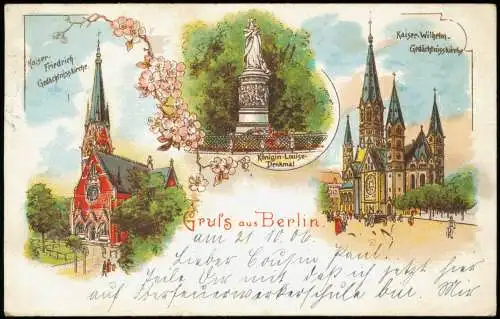 Kaiser-
Friedrich
Gedächtnisskirche
Kaiser-Wilhelm-
Gedächtnisskirche
Königin-Louise-
Denkmal
Gruss aus Berlin.
am 21 10. 06.
Lieber Cousin Paul.
Teile Dir mit daß ich jetzt hier
auf Oberfeuerwerkerschule bin. Mir